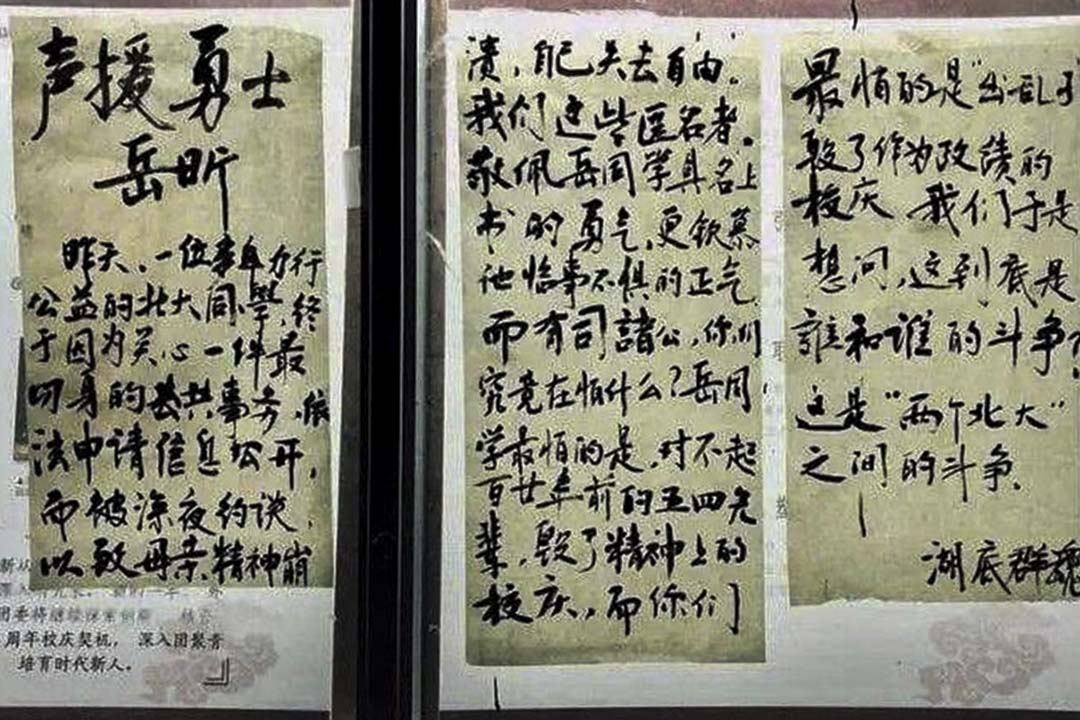 声援勇士
岳昕
昨天，一位事必力行
公益的北大同學，终
于因为关心一件最
切身的公共事务，依
法申请信息公开，
而被深夜约谈，
以致母亲精神崩
溃，自己失去自由。
我们这些匿名者。
敬佩岳同学具名上
书的勇气，更钦慕
他临事不惧的正气
而有司諸公，你们
究竟在怕什么？岳同
学最怕的是，对不起
百廿年前的五四先
辈，毁了精神上的
校庆，而你们
最怕的是“出乱子”
毁了作为政绩的
校庆 我们于是
想问，这到底是
誰和谁的斗争？
这是“两个北大”
之间的斗争。
湖底群魂
周年校庆契机， 深入团聚青
培育时代新人。